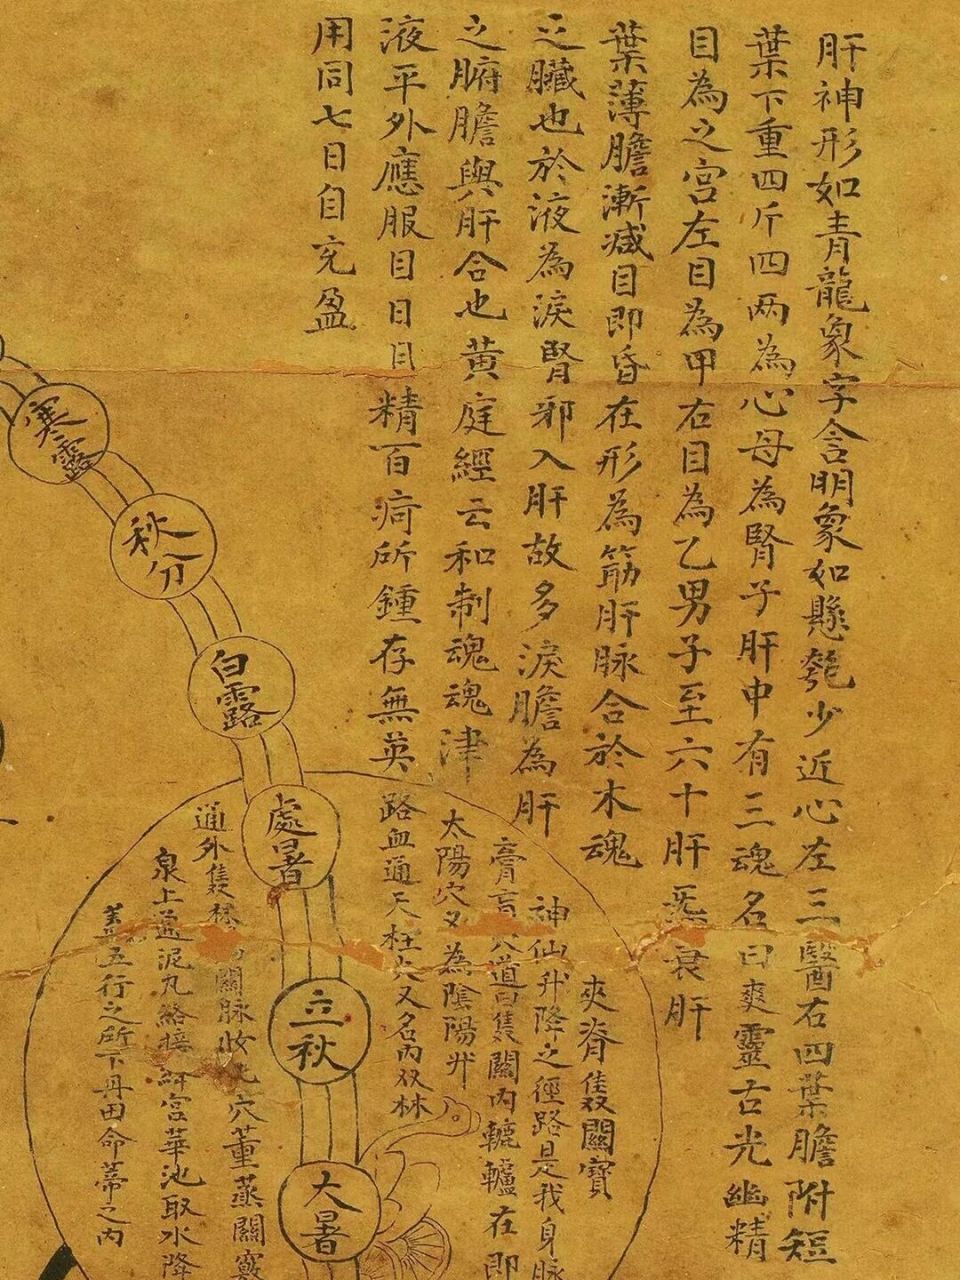 肝神形如青龍象字含明象如懸瓠少近心左三醫右四葉膽附短
葉下重四斤四两為心母為腎子肝中有三魂名曰爽靈台光幽精
目為之宮左目為甲右目為乙男子至六十肝炁衰肝
葉薄膽漸減目即昏在形為筋肝脉合於木魂
之臟也於液為淚腎邪入肝故多淚膽為肝
之腑膽與肝合也黄庭經云和制魂魂津
液平外應服目日月精百疴所鍾存無英
用同七日自充盈
夾脊雙關寶
神仙升降之徑路是我身脉
膏肓穴道曰雙關内轆轤在即
太陽穴又為陰陽升
路血通天柱穴又名内双林
通外雙林 関脉 穴董蒸關竅
泉上通泥丸絡接絳宮華池取水降
蓋五行之所下丹田命蒂之内
寒露
秋分
白露
處暑
立秋
大暑